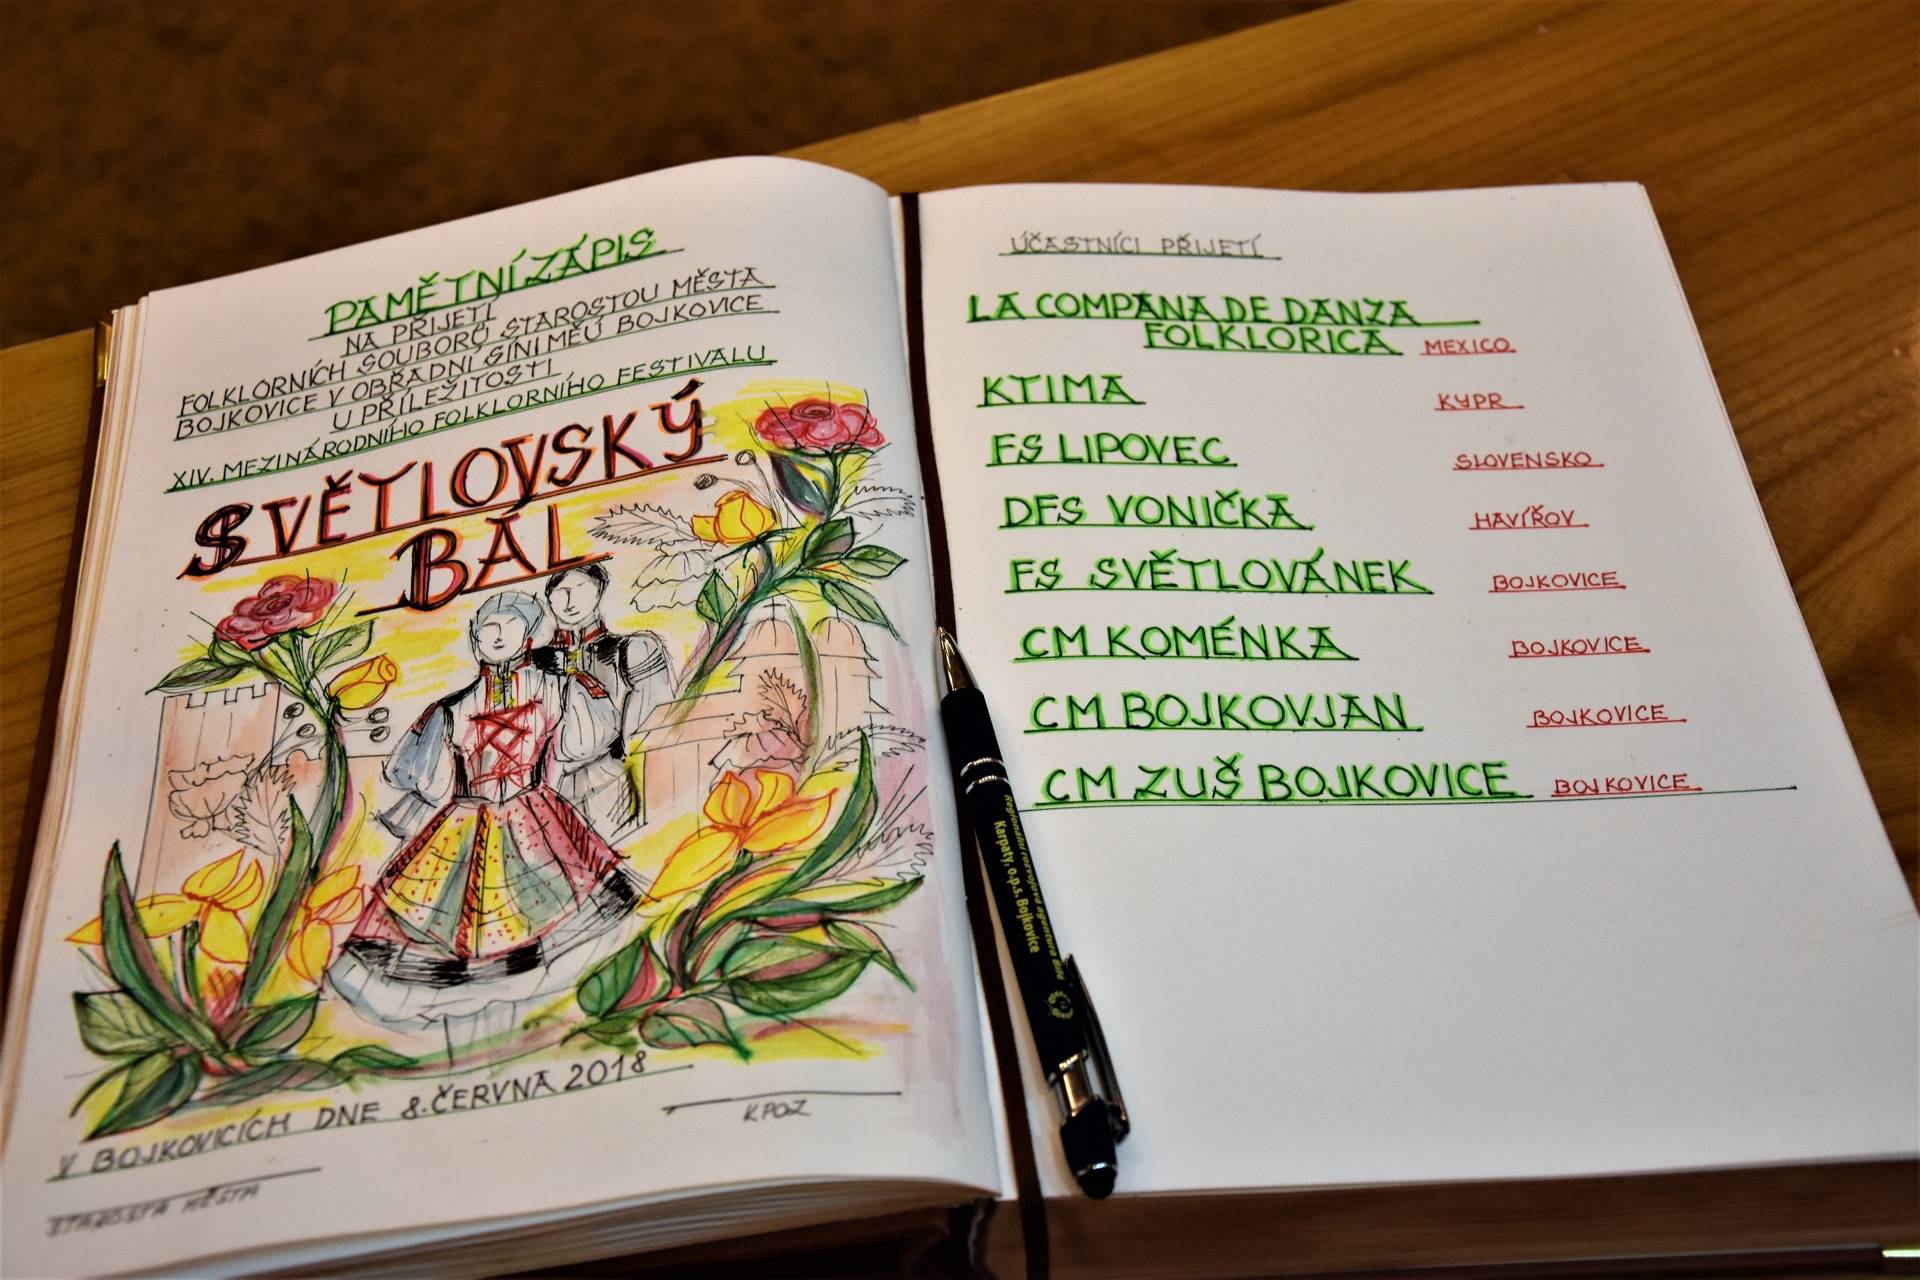 PAMĚTNÍ ZÁPIS
NA PŘIJETÍ
FOLKLORNÍCH SOUBORŮ STAROSTOU MĚSTA
BOJKOVICE V OBŘADNÍ SÍNI MĚÚ BOJKOVICE
U PŘÍLEŽITOSTI
XIV. MEZINÁRODNÍHO FOLKLORNÍHO FESTIVALU
SVĚTLOVSKÝ
BÁL
V BOJKOVICÍCH DNE 8. ČERVNA 2018
KPOZ
STAROSTA MĚSTA
ÚČASTNÍCI PŘIJETÍ
LA COMPANA DE DANZA
FOLKLORICA MEXICO
KTIMA KYPR
FS LIPOVEC SLOVENSKO
DFS VONIČKA HAVÍŘOV
FS SVĚTLOVÁNEK BOJKOVICE
CM KOMÉNKA BOJKOVICE
CM BOJKOVJAN BOJKOVICE
CM ZUŠ BOJKOVICE BOJKOVICE
Regionální rozvojová agentura Bílé
Karpaty, o.p.s. Bojkovice